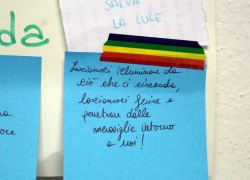 SALVA
LA LUCE
da
Lasciamoci illuminare da
ciò che ci circonda,
lasciamoci ferire e
penetrare dalle
meraviglie intorno
a noi!